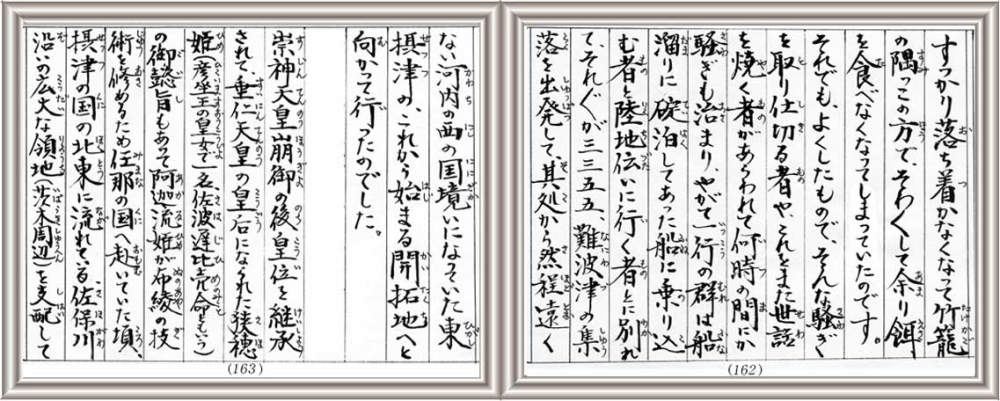 すっかり落ち着かなくなって竹籠
の隅っこの方で、そわ〱して余り餌
を食べなくなってしまっていたのです。
それでも、よくしたもので、そんな騒ぎ
を取り仕切る者や、これをまた世話
を焼く者があらわれて何時の間にか
騒ぎも治まり、やがて一行の群は船
溜りに碇泊してあった船に乗り込
む者と陸地伝いに行く者とに別れ
て、それ〲が三三五五、難波津の集
落を出発して、其処から然程遠く
(162)
ない河内の西の国境いになっていた東
摂津の、これから始まる開拓地へと
向かって行ったのでした。
崇神天皇崩御の後皇位を継承
されて垂仁天皇の皇后になられた狭穂
姫(彦座王の皇女で一名、佐波遅比売命ともいう)
の御懿旨もあって阿迦流姫が布綾の技
術を修めるため任那の国へ赴いていた頃、
摂津の国の北東に流れている佐保川
沿いの広大な領地(茨木周辺)を支配して
(163)